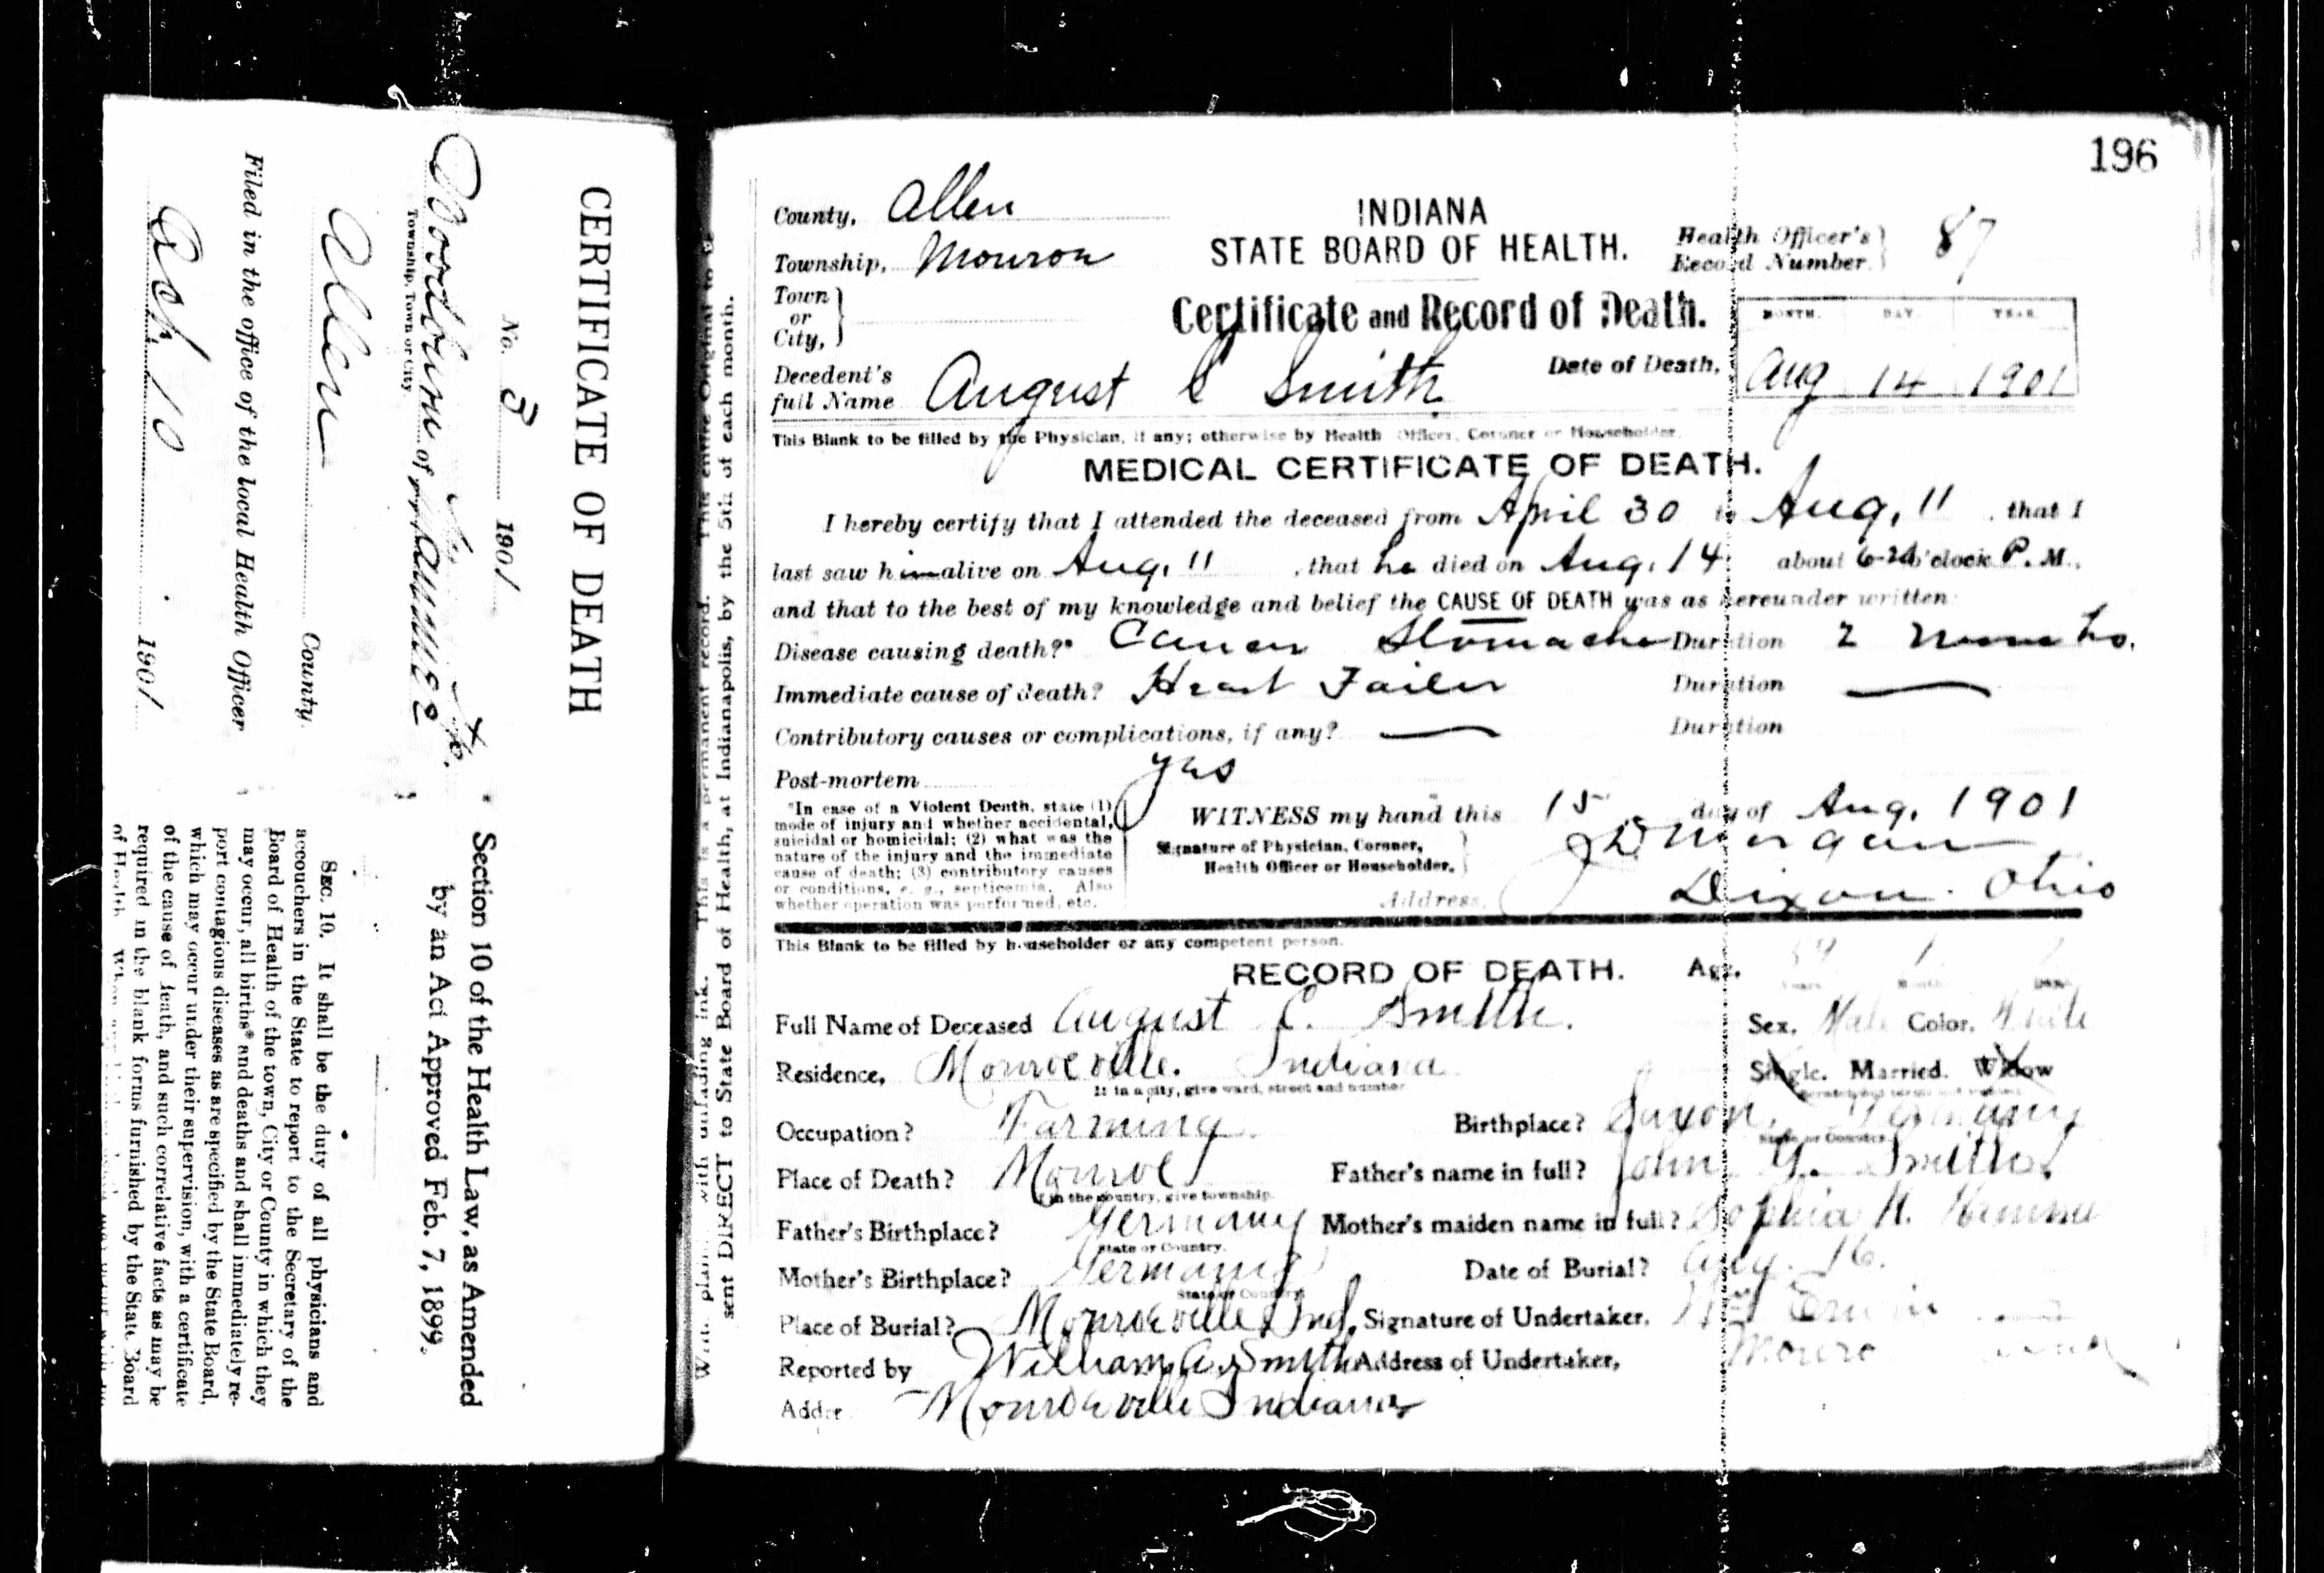 CERTIFICATE OF DEATH
No. 3 1901
Woodburn of Maumee
Township, Town or City
Allen County.
Filed in the office of the local Health Officer
10 1901
Section 10 of the Health Law, as Amended
by an Act Approved Feb. 7, 1899.
SEC. 10. It shall be the duty of all physicians and
accouchers in the State to report to the Secretary of the
Board of Health of the town, City or County in which they
may occur, all births* and deaths and shall immediately re-
port contagious diseases as are specified by the State Board,
which may occur under their supervision, with a certificate
of the cause of death, and such correlative facts as may be
required in the blank forms furnished by the State Board
of Health.
with unfading ink. This is a permanent record. This entire Original to be
sent DIRECT to State Board of Health, at Indianapolis, by the 5th of each month.
196
County, Allen
Township, Monroe
Town
or
City,
INDIANA
STATE BOARD OF HEALTH.
Health Officer's
Record Number 87
Certificate and Record of Death.
MONTH. DAY. YEAR.
Decedent's
full Name August C Smith
Date of Death, Aug 14 1901
This Blank to be filled by the Physician, if any; otherwise by Health Officer, Coroner or Householder.
MEDICAL CERTIFICATE OF DEATH.
I hereby certify that I attended the deceased from April 30 to Aug, 11, that I
last saw him alive on Aug, 11, that he died on Aug. 14 about o'clock P. M.,
and that to the best of my knowledge and belief the CAUSE OF DEATH was as hereunder written
Disease causing death?* Cancer Stomache Duration 2 months.
Immediate cause of death? Heart Failer Duration —
Contributory causes or complications, if any? — Duration
Post-mortem yes
*In case of a Violent Death, state (1)
mode of injury and whether accidental,
suicidal or homicidal; (2) what was the
nature of the injury and the immediate
cause of death; (3) contributory causes
or conditions, e. g., septicemia. Also
whether operation was performed, etc.
WITNESS my hand this 15 day of Aug, 1901
Signature of Physician, Coroner,
Health Officer or Householder, J D Morgan
Address, Dixon Ohio
This Blank to be filled by householder or any competent person.
RECORD OF DEATH. Age.
Full Name of Deceased August C. Smith. Sex, Male Color, White
Residence, Monroeville. Indiana Single. Married. Widow
If in a city, give ward, street and number
Occupation? Farming Birthplace? Saxon, Germany
State or Country.
Place of Death? Monroe Father's name in full? John G. Smith
If in the country, give township.
Father's Birthplace? Germany Mother's maiden name in full? Sophia H.
State or Country.
Mother's Birthplace? Germany Date of Burial? Aug. 16.
State or Country
Place of Burial? Monroeville, Ind, Signature of Undertaker,
Reported by William A. Smith Address of Undertaker,
Addre Monroeville Indiana